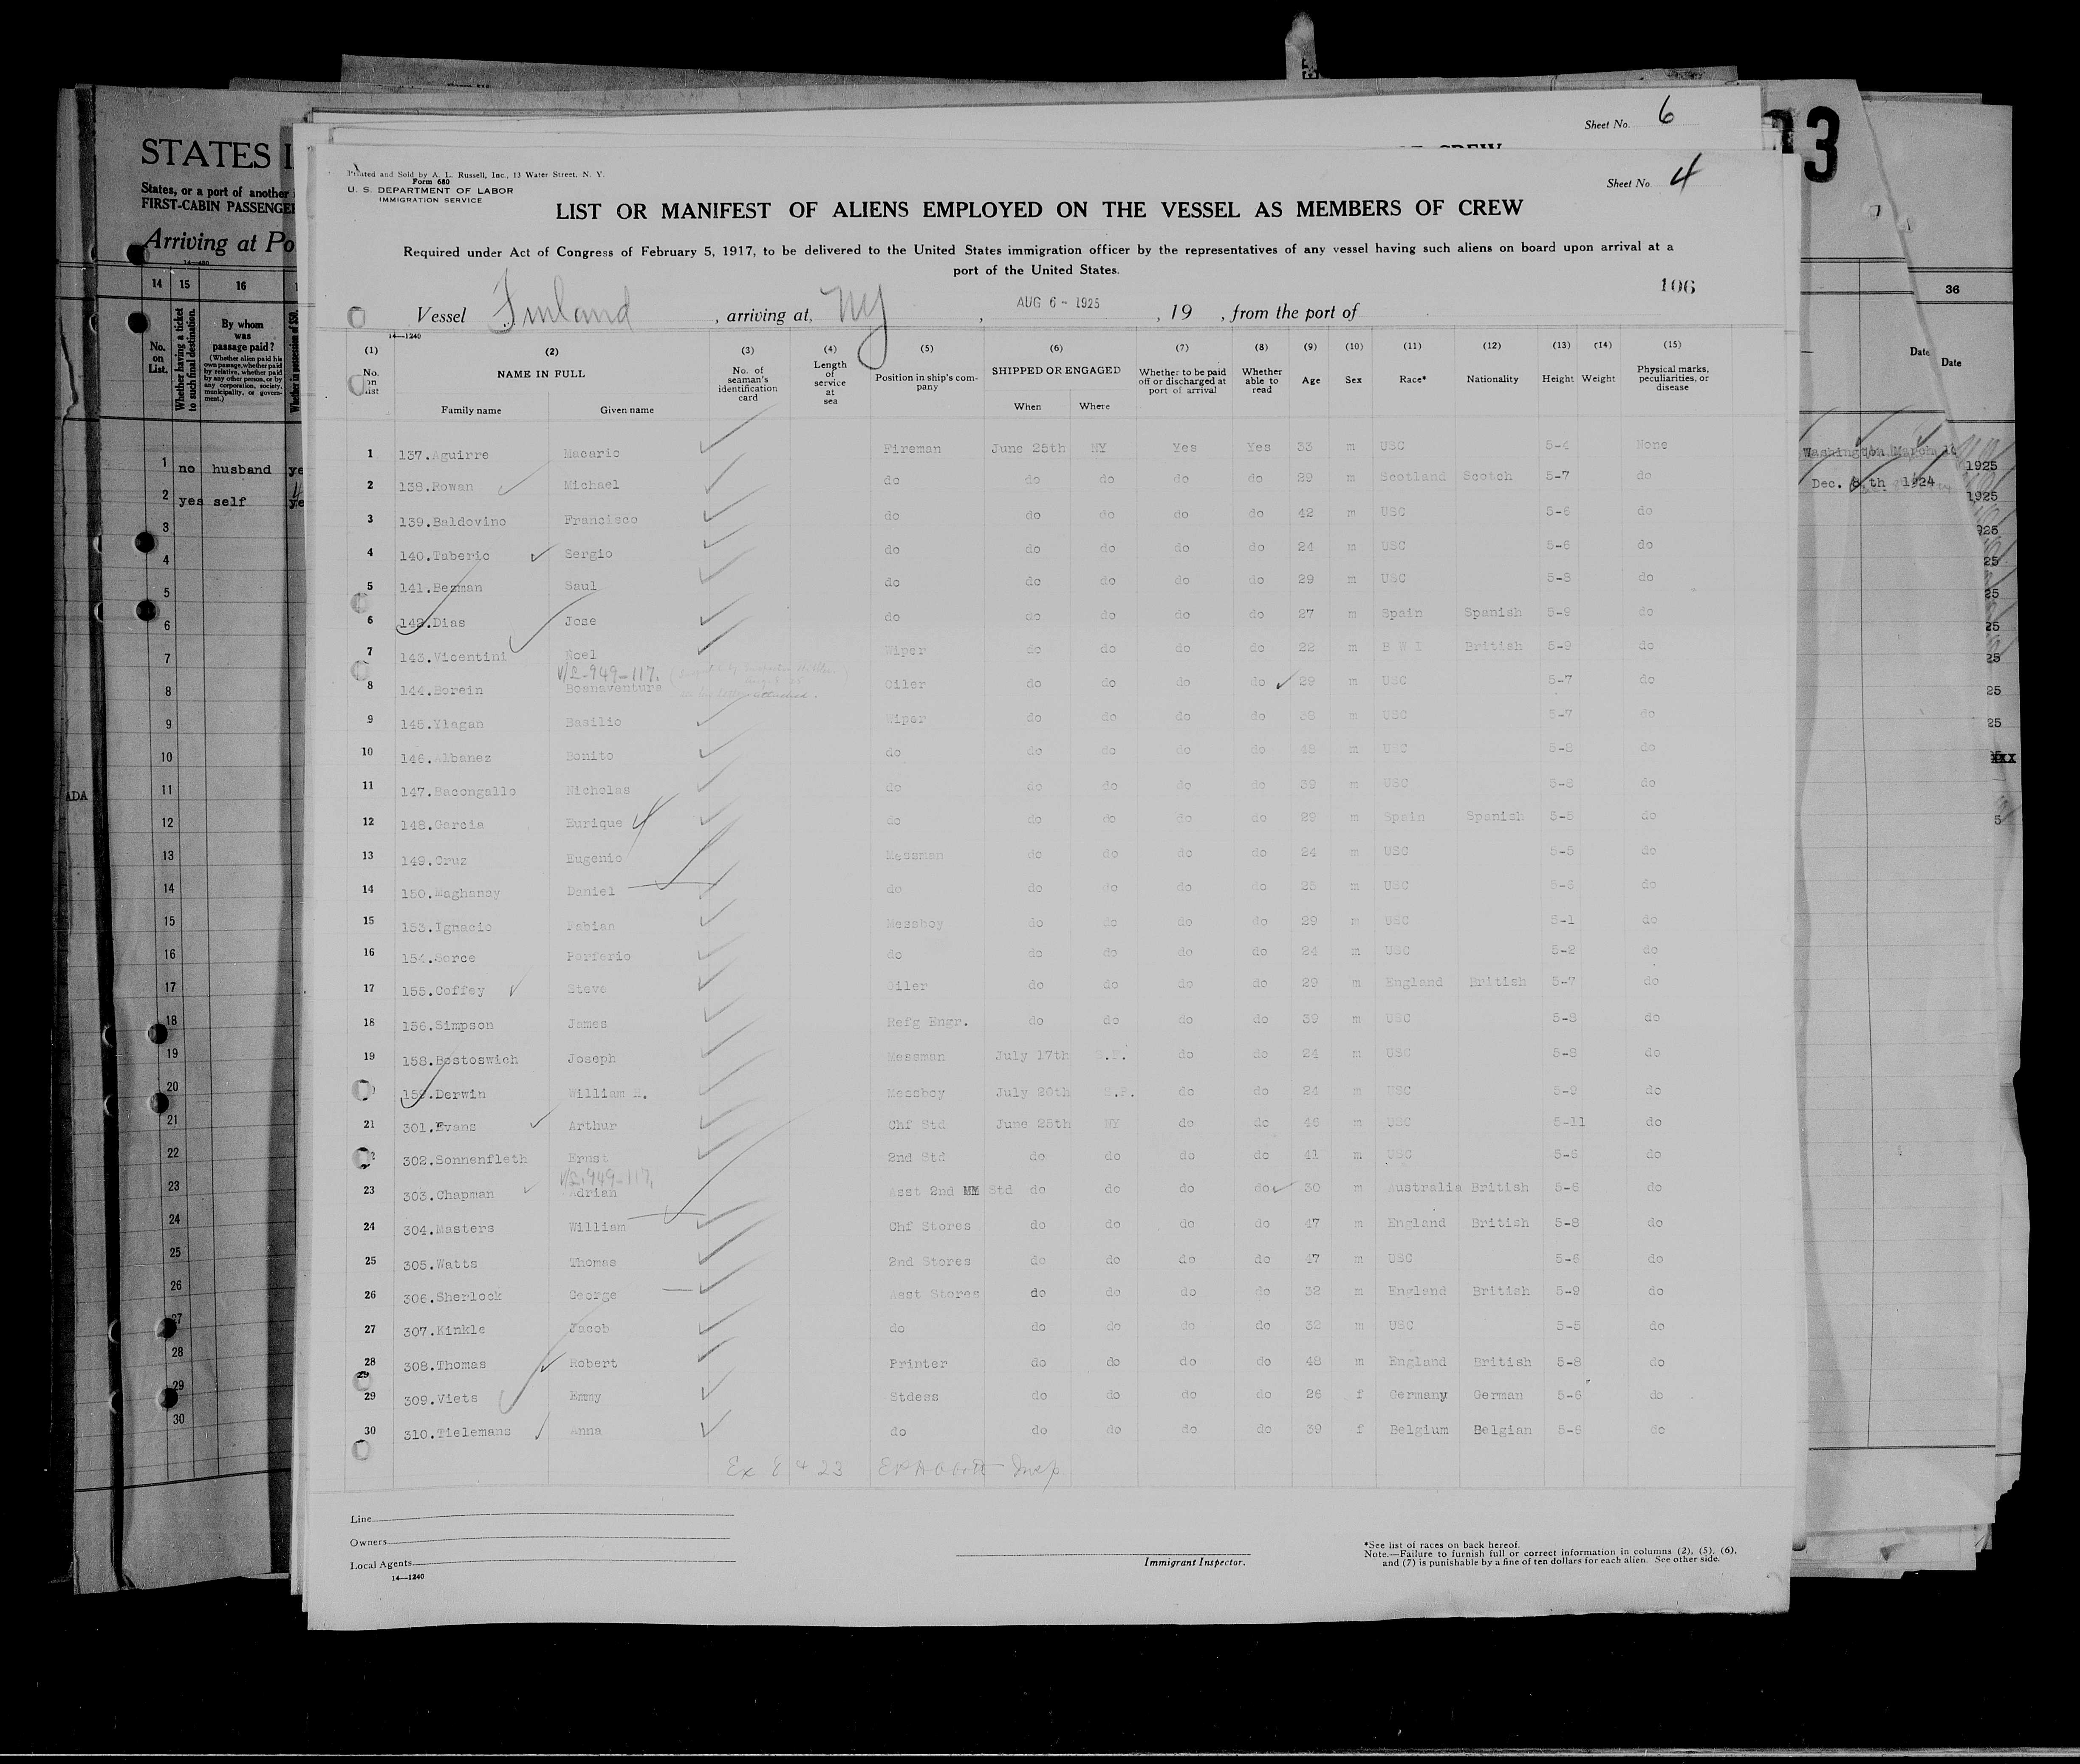 Sheet No. 6
Sheet No. 4
Printed and Sold by A. L. Russell, Inc., 13 Water Street, N. Y.
Form 680
U. S. DEPARTMENT OF LABOR
IMMIGRATION SERVICE
LIST OR MANIFEST OF ALIENS EMPLOYED ON THE VESSEL AS MEMBERS OF CREW
Required under Act of Congress of February 5, 1917, to be delivered to the United States immigration officer by the representatives of any vessel having such aliens on board upon arrival at a
port of the United States.
106
Vessel Finland , arriving at, NY , AUG 6 - 1925 , 19 , from the port of
14—1240
(1) (2) (3) (4) (5) (6) (7) (8) (9) (10) (11) (12) (13) (14) (15)
No. on List NAME IN FULL Family name Given name No. of seaman's identification card Length of service at sea Position in ship's company SHIPPED OR ENGAGED When Where Whether to be paid off or discharged at port of arrival Whether able to read Age Sex Race* Nationality Height Weight Physical marks, peculiarities, or disease
1 137.Aguirre Macario Fireman June 25th NY Yes Yes 33 m USC 5-4 None
2 138.Rowan Michael do do do do do 29 m Scotland Scotch 5-7 do
3 139.Baldovino Francisco do do do do do 42 m USC 5-6 do
4 140.Taberio Sergio do do do do do 24 m USC 5-6 do
5 141.Bezman Saul do do do do do 29 m USC 5-8 do
6 142.Dias Jose do do do do do 27 m Spain Spanish 5-9 do
7 143.Vicentini Noel Wiper do do do do 22 m B W I British 5-9 do
V/2-949-117.
8 144.Borein Boanaventura Oiler do do do do 29 m USC 5-7 do
9 145.Ylagan Basilio Wiper do do do do 38 m USC 5-7 do
10 146.Albanez Bonito do do do do do 48 m USC 5-8 do
11 147.Bacongallo Nicholas do do do do do 39 m USC 5-8 do
12 148.Garcia Eurique do do do do do 29 m Spain Spanish 5-5 do
13 149.Cruz Eugenio Messman do do do do 24 m USC 5-5 do
14 150.Maghanay Daniel do do do do do 25 m USC 5-6 do
15 153.Ignacio Fabian Messboy do do do do 29 m USC 5-1 do
16 154.Sorce Porferio do do do do do 24 m USC 5-2 do
17 155.Coffey Steve Oiler do do do do 29 m England British 5-7 do
18 156.Simpson James Refg Engr. do do do do 39 m USC 5-8 do
19 158.Bostoswich Joseph Messman July 17th S.F. do do 24 m USC 5-8 do
159.Derwin William H. Messboy July 20th S.F. do do 24 m USC 5-9 do
21 301.Evans Arthur Chf Std June 25th NY do do 46 m USC 5-11 do
302.Sonnenfleth Ernst 2nd Std do do do do 41 m USC 5-6 do
V/2-949-117.
23 303.Chapman Adrian Asst 2nd MM Std do do do do 30 m Australia British 5-6 do
24 304.Masters William Chf Stores do do do do 47 m England British 5-8 do
25 305.Watts Thomas 2nd Stores do do do do 47 m USC 5-6 do
26 306.Sherlock George Asst Stores do do do do 32 m England British 5-9 do
27 307.Kinkle Jacob do do do do do 32 m USC 5-5 do
28 308.Thomas Robert Printer do do do do 48 m England British 5-8 do
29
29 309.Viets Emmy Stdess do do do do 26 f Germany German 5-6 do
30 310.Tielemans Anna do do do do do 39 f Belgium Belgian 5-6 do
Ex 8 + 23 Insp
Line
Owners
Local Agents
14—1240
Immigrant Inspector.
*See list of races on back hereof.
Note.—Failure to furnish full or correct information in columns (2), (5), (6),
and (7) is punishable by a fine of ten dollars for each alien. See other side.
STATES
States, or a port of another
FIRST-CABIN PASSENGER
Arriving at Po
14 15 16
No. on List.
Whether having a ticket to such final destination.
By whom was passage paid?
(Whether alien paid his own passage, whether paid by relative, whether paid by any other person, or by any corporation, society, municipality, or government.)
1 no husband ye
2 yes self ye
3
4
5
6
7
8
9
10
11
12
13
14
15
16
17
18
19
20
21
22
23
24
25
26
27
28
29
30
ADA
3
36
Date
Date
Washington March
1925
Dec. 8 th 1924
1925